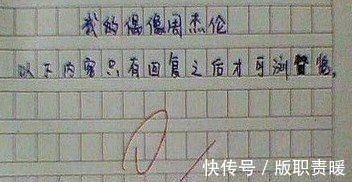 我的偶像周杰伦
以下内容只有回复之后才可浏览。
快传号/版职责暖